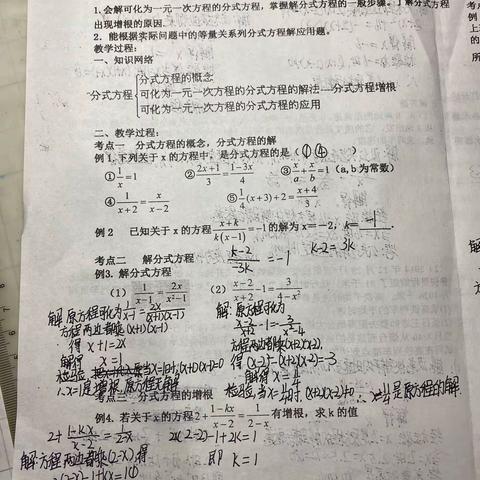 1.会解可化为一元一次方程的分式方程，掌握解分式方程的一般步骤。了解分式方程
出现增根的原因.
2．能根据实际问题中的等量关系列分式方程解应用题。
教学过程：
一、知识网络
分式方程的概念
分式方程 可化为一元一次方程的分式方程的解法—分式方程增根
可化为一元一次方程的分式方程的应用
二、教学过程：
考点一 分式方程的概念，分式方程的解
例1.下列关于 x 的方程中，是分式方程的是（ ①④ ）
①1/x=1 ②(2x+1)/3=(1-3x)/4 ③x/a+x/b=1（a, b 为常数）
④1/(x+2)=x/(x-2) ⑤1/4(x+3)+2=(x+4)/3
例2 已知关于 x 的方程(x+k)/(k(x-1))=-1的解为 x=-2，k= -1 .
考点二 解分式方程 (k-2)/(-3k)=-1 k-2=3k
例3. 解分式方程
（1）1/(x-1)=2x/(x²-1) （2）(x-2)/(x+2)-1=3/(4-x²)
解:原方程可化为 1/(x-1)=2x/((x+1)(x-1))
方程两边都乘(x+1)(x-1)
得 x+1=2x
解得 x=1
检验: 当x=1时,(x+1)(x-1)=0
∴x=1是增根,原方程无解
解:原方程可化为
方程两边都乘(x+2)(x-2),
得 (x-2)²-(x+2)(x-2)=-3
解得
检验,当x= 时, (x+2)(x-2)≠0 是原方程的解.
考点三 分式方程的增根
例4. 若关于 x 的方程2+(1-kx)/(x-2)=1/(2-x)有增根，求 k 的值
2+(1-kx)/(x-2)=1/(2-x) 2(2-2)-1+2k=1
解:方程两边都乘(2-x),得 即 k=1